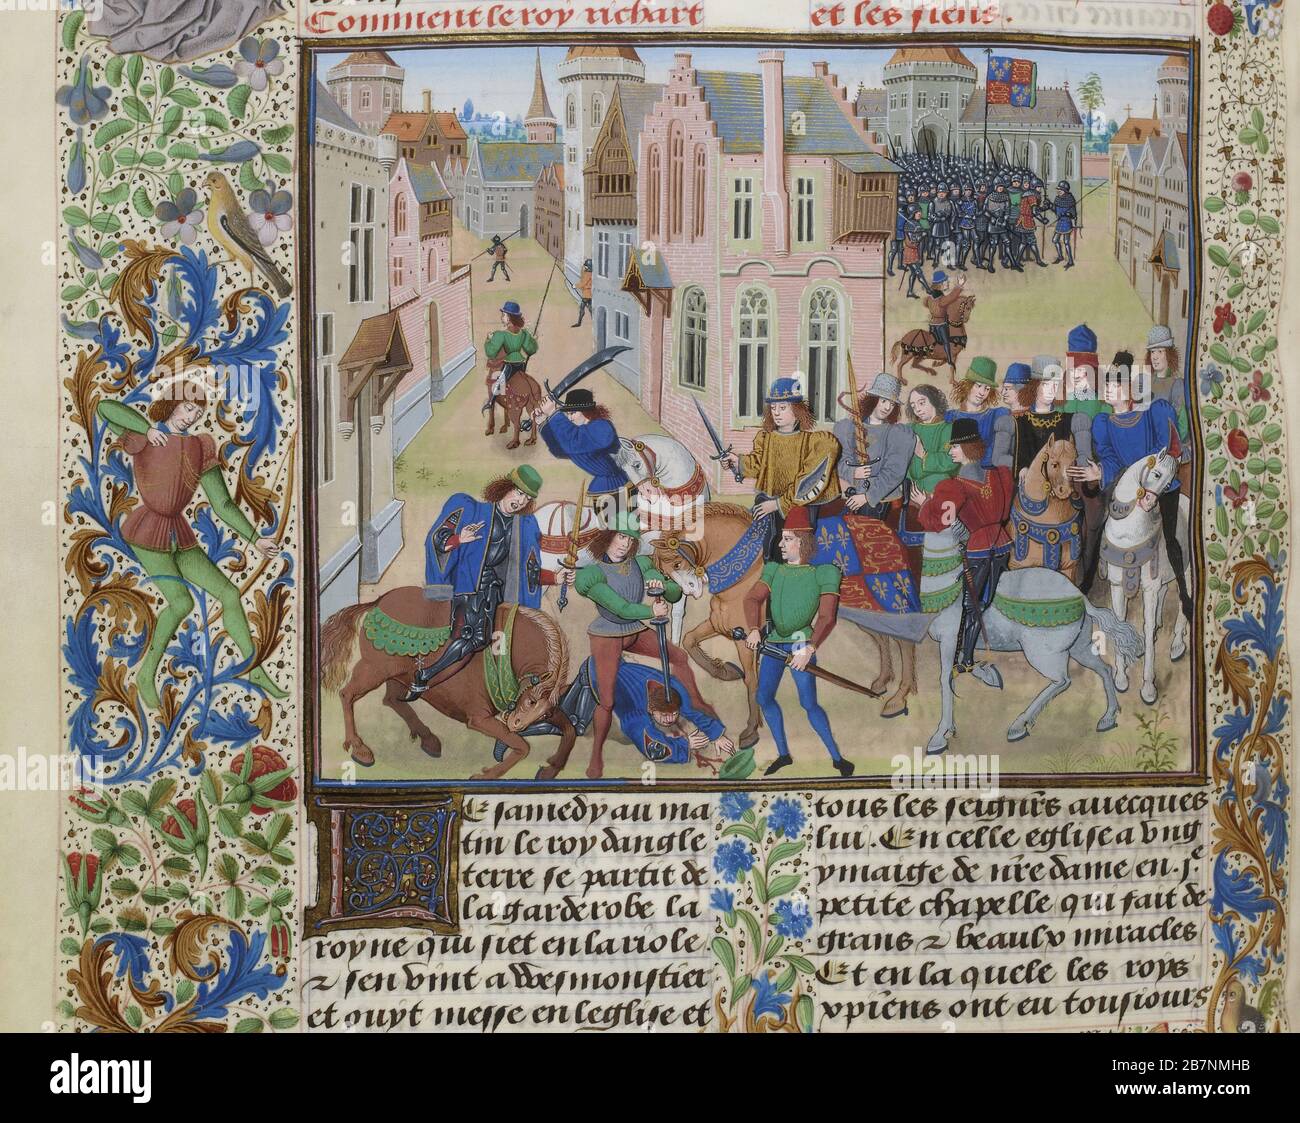 Comment le roy richart
et les siens.
Et samedy au ma
tin le roy dangle
terre se partit de
la garderobe la
royne qui siet en la riole
⁊ sen vint a Wesmonstier
et ouyt messe en leglise et
tous les seigñrs avecques
lui. Et en celle eglise a vng
ymaige de nr̃e dame en .j.e
petite chapelle qui fait de
grans ⁊ beaulx miracles
Et en la quele les roys
ont eu tousiours
alamy
Image ID: 2B7NMHB
www.alamy.com